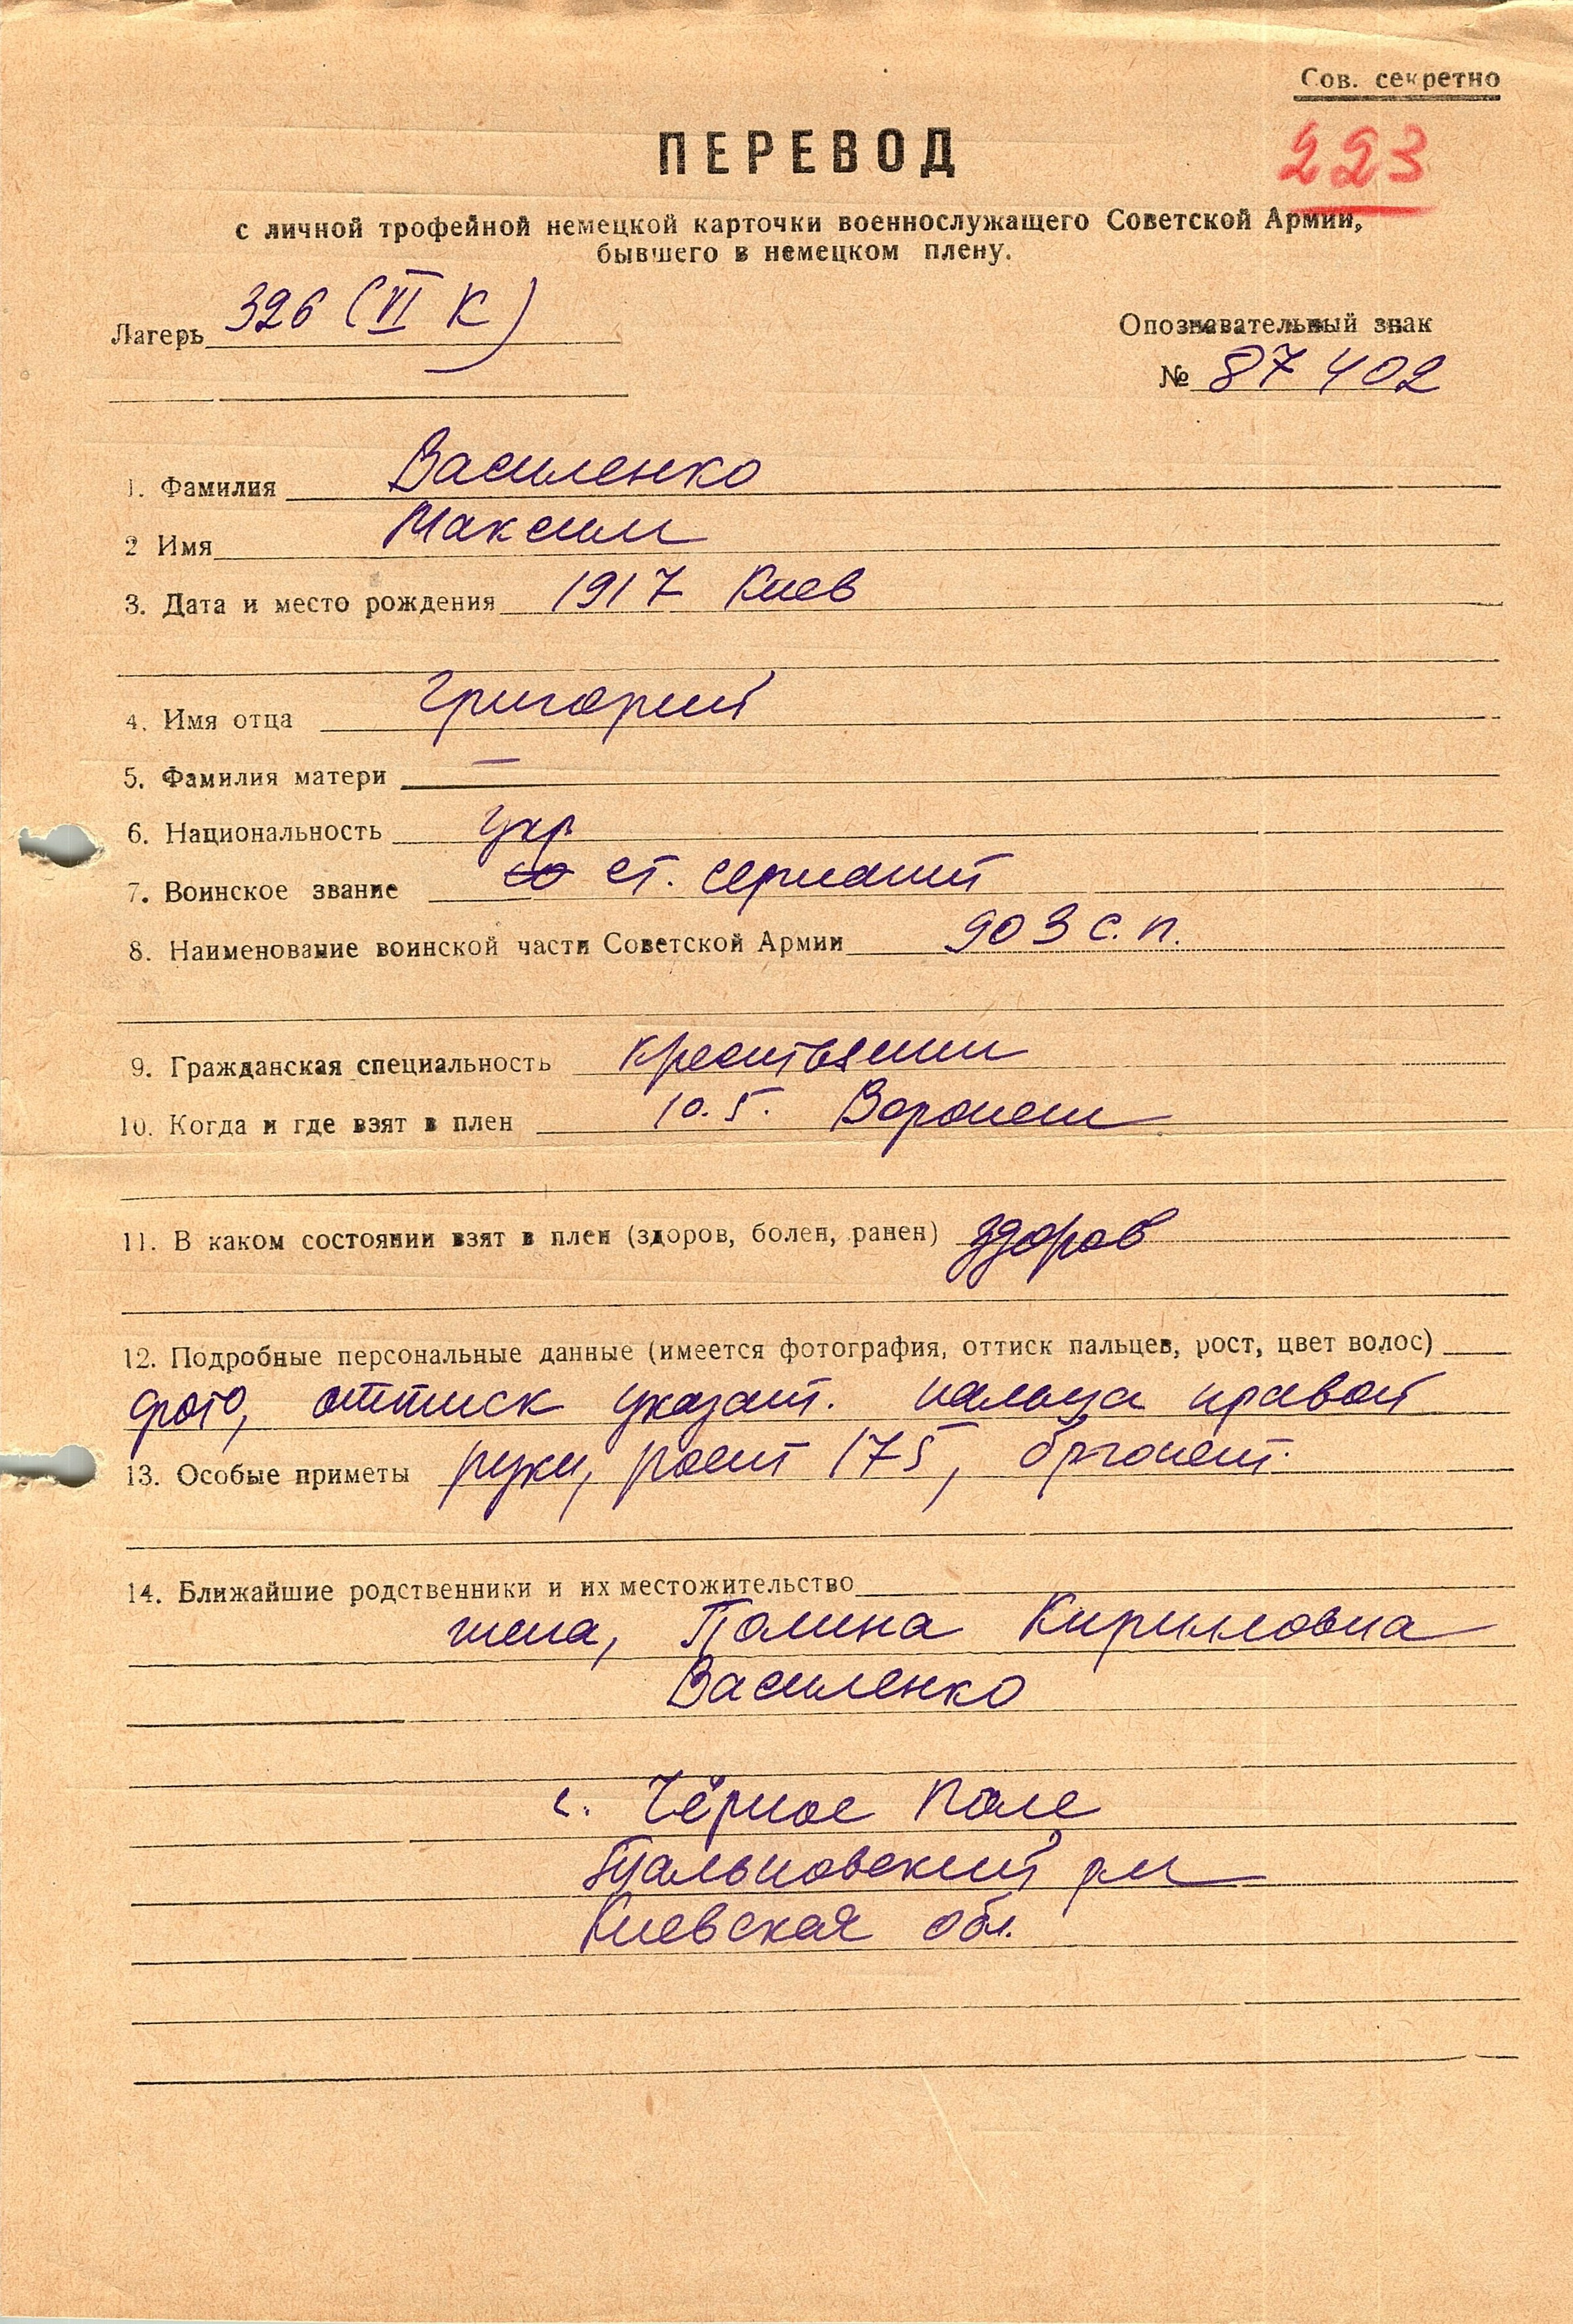 Сов. секретно
223
ПЕРЕВОД
с личной трофейной немецкой карточки военнослужащего Советской Армии,
бывшего в немецком плену.
Лагерь 326 (VI К)
Опознавательный знак
№ 87 402
1. Фамилия Василенко
2 Имя Максим
3. Дата и место рождения 1917 Киев
4. Имя отца Григорий
5. Фамилия матери —
6. Национальность укр
7. Воинское звание ст. сержант
8. Наименование воинской части Советской Армии 903 с.п.
9. Гражданская специальность крестьянин
10. Когда и где взят в плен 10.5. Воронеж
11. В каком состоянии взят в плен (здоров, болен, ранен) здоров
12. Подробные персональные данные (имеется фотография, оттиск пальцев, рост, цвет волос)
фото, оттиск указат. пальца правой
13. Особые приметы руки, рост 175, брюнет.
14. Ближайшие родственники и их местожительство
жена, Полина Кирилловна
Василенко
с. Чёрное Поле
рн
Киевская обл.